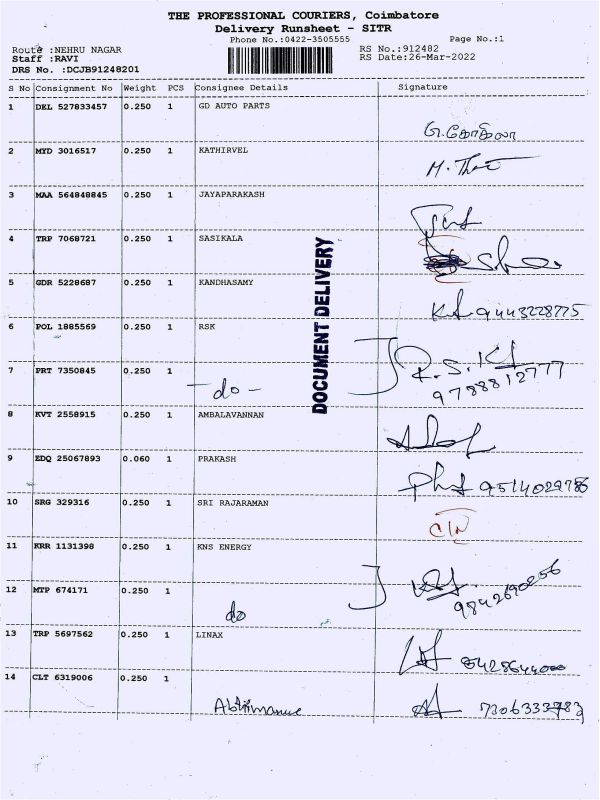 THE PROFESSIONAL COURIERS, Coimbatore
Delivery Runsheet - SITR
Phone No.:0422-3505555 Page No.:1
Route :NEHRU NAGAR RS No.:912482
Staff :RAVI RS Date:26-Mar-2022
DRS No. :DCJB91248201
S No Consignment No Weight PCS Consignee Details Signature
1 DEL 527833457 0.250 1 GD AUTO PARTS
2 MYD 3016517 0.250 1 KATHIRVEL
3 MAA 564848845 0.250 1 JAYAPARAKASH
4 TRP 7068721 0.250 1 SASIKALA
5 GDR 5228687 0.250 1 KANDHASAMY 9443228775
6 POL 1885569 0.250 1 RSK R.S.K
7 PRT 7350845 0.250 1 -do- 9788812777
8 KVT 2558915 0.250 1 AMBALAVANNAN
9 EDQ 25067893 0.060 1 PRAKASH
10 SRG 329316 0.250 1 SRI RAJARAMAN
11 KRR 1131398 0.250 1 KNS ENERGY
12 MTP 674171 0.250 1 do 9842690256
13 TRP 5697562 0.250 1 LINAX
14 CLT 6319006 0.250 1 7306333783
DOCUMENT DELIVERY